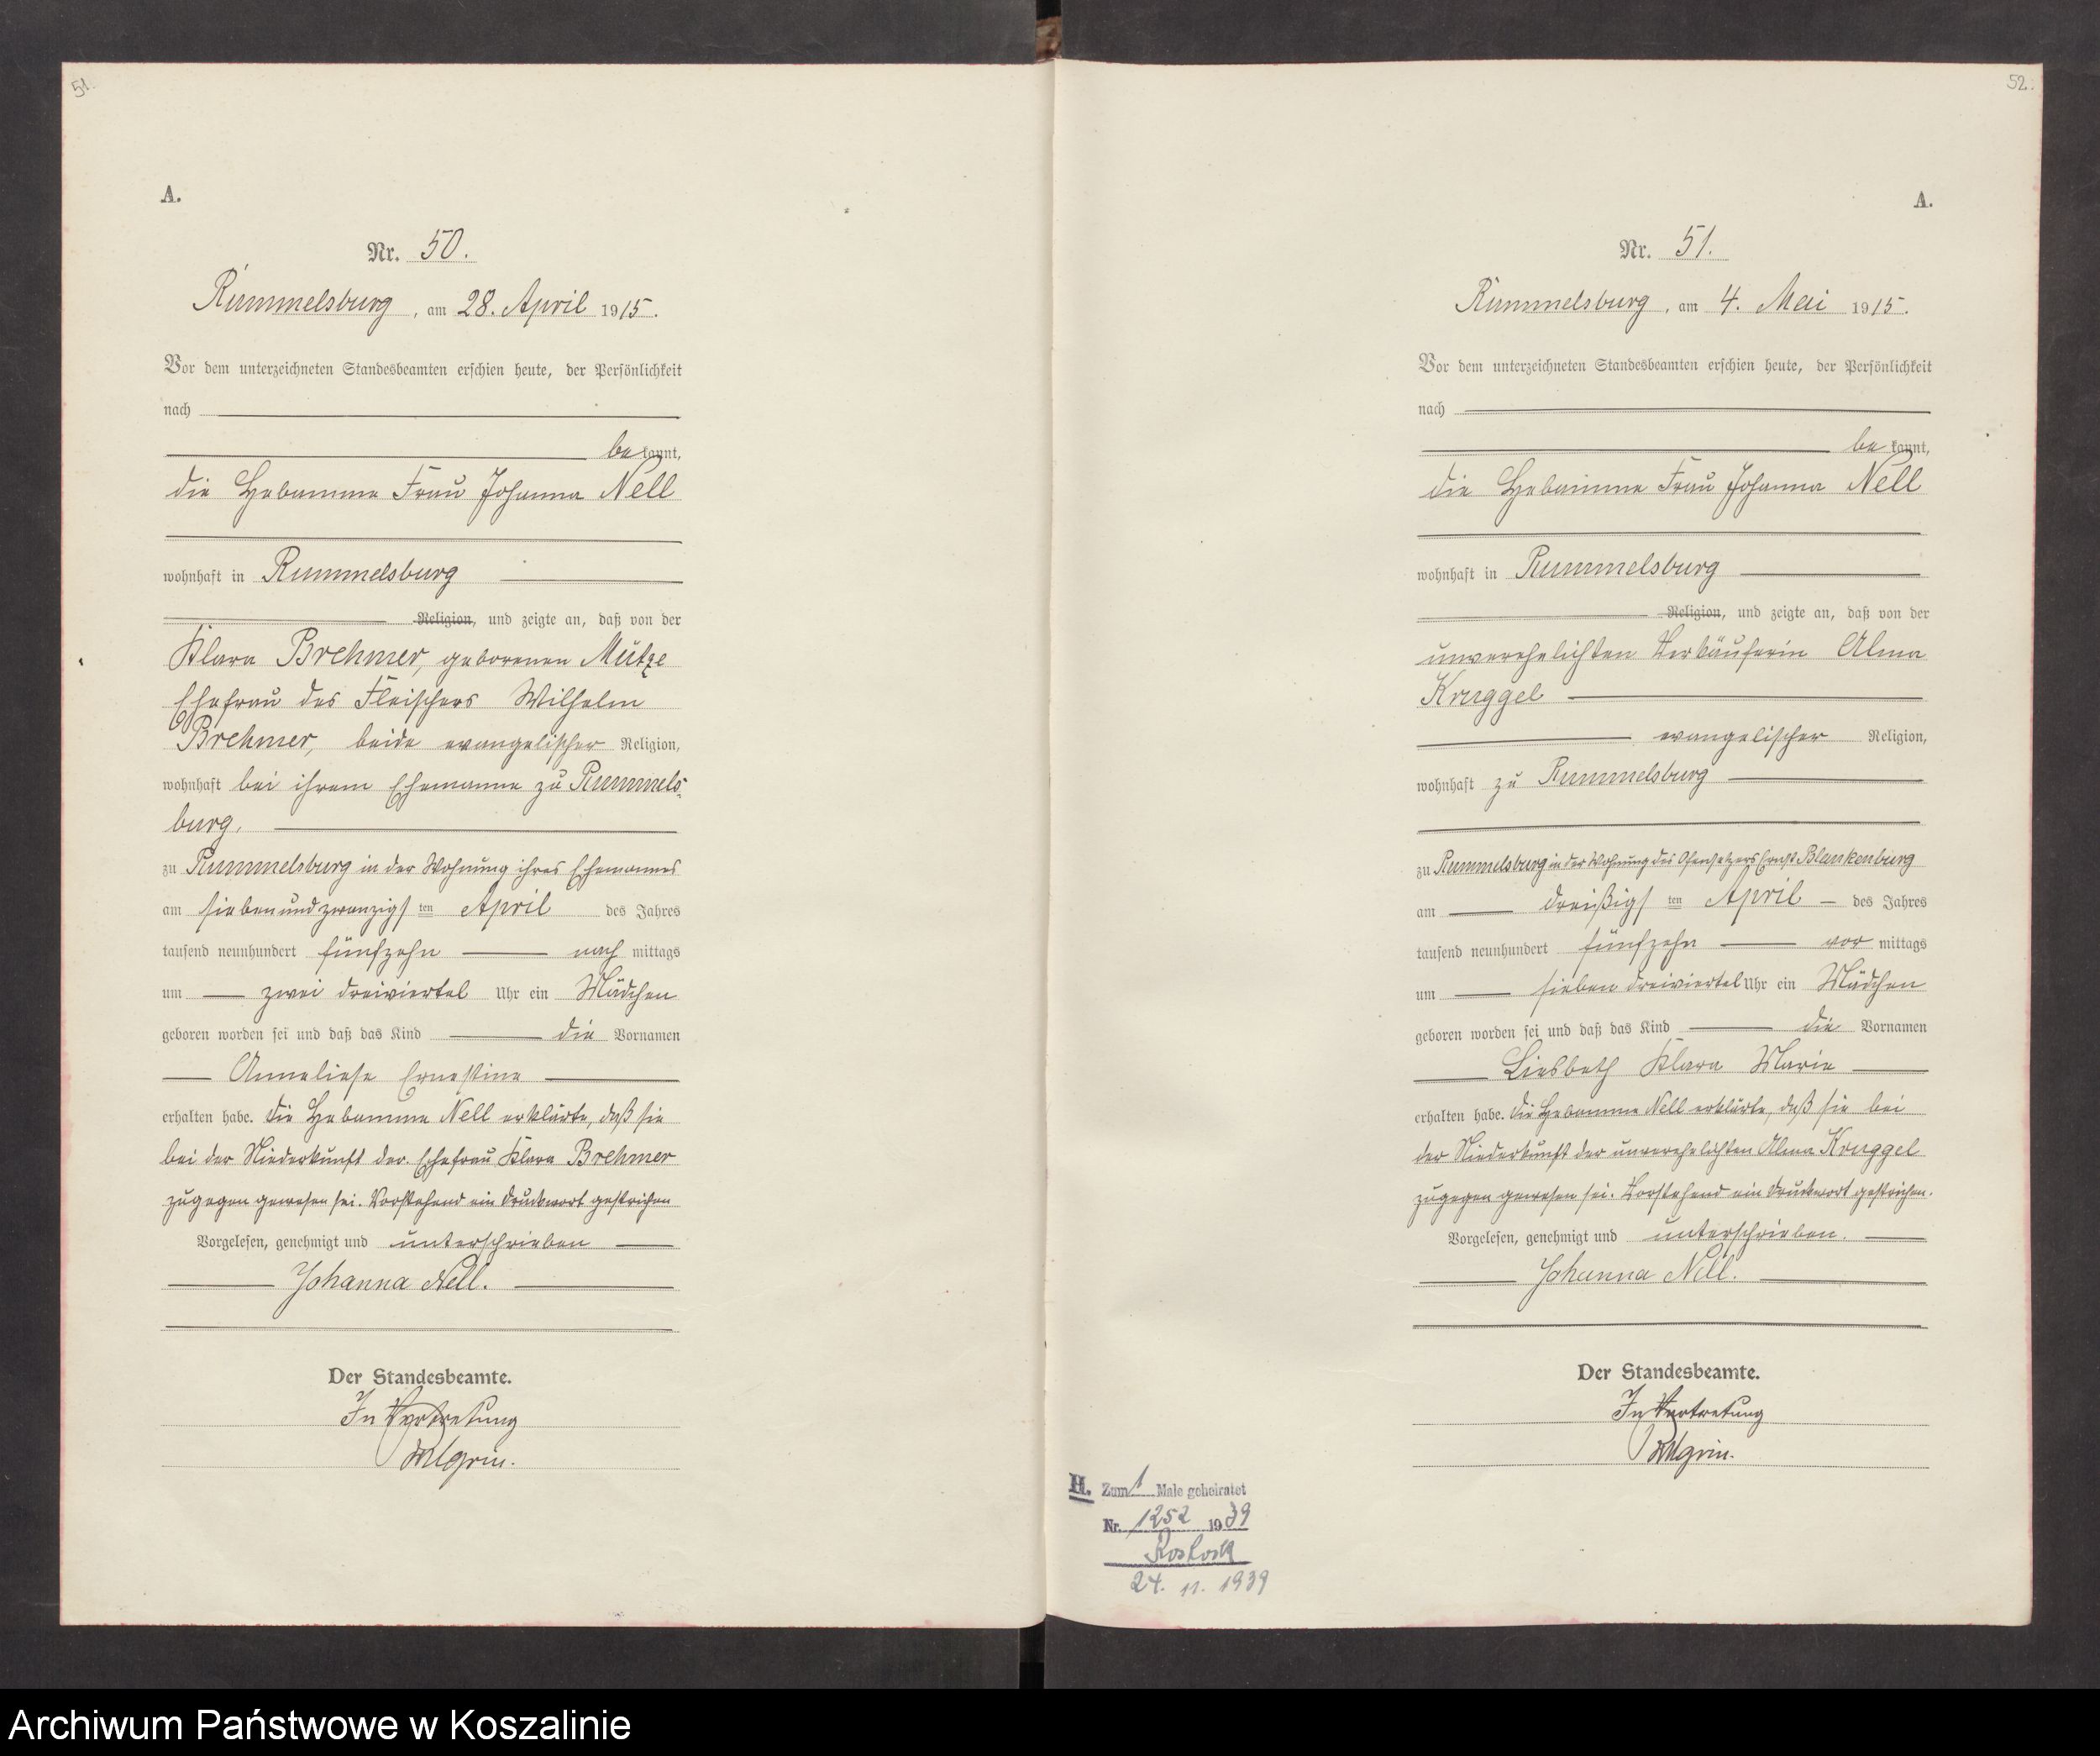 51.
A.
Nr. 50.
Rummelsburg, am 28. April 1915.
Vor dem unterzeichneten Standesbeamten erschien heute, der Persönlichkeit
nach
be kannt,
die Hebamme Frau Johanna Nell
wohnhaft in Rummelsburg
Religion, und zeigte an, daß von der
Klara Brehmer, geborenen Mütze
Ehefrau des Fleischers Wilhelm
Brehmer, beide evangelischer Religion,
wohnhaft bei ihrem Ehemanne zu Rummels-
burg.
zu Rummelsburg in der Wohnung ihres Ehemannes
am siebenundzwanzigsten April des Jahres
tausend neunhundert fünfzehn nach mittags
um zwei dreiviertel Uhr ein Mädchen
geboren worden sei und daß das Kind die Vornamen
Anneliese Ernestine
erhalten habe. Die Hebamme Nell erklärte, daß sie
bei der Niederkunft der Ehefrau Klara Brehmer
zugegen gewesen sei. Vorstehend ein Druckwort gestrichen
Vorgelesen, genehmigt und unterschrieben
Johanna Nell.
Der Standesbeamte.
In Vertretung
52.
A.
Nr. 51.
Rummelsburg, am 4. Mai 1915.
Vor dem unterzeichneten Standesbeamten erschien heute, der Persönlichkeit
nach
be kannt,
die Hebamme Frau Johanna Nell
wohnhaft in Rummelsburg
Religion, und zeigte an, daß von der
unverehelichten Verkäuferin Alma
Kruggel
evangelischer Religion,
wohnhaft zu Rummelsburg
zu Rummelsburg in der Wohnung des Ofensetzers Ernst Blankenburg
am dreißigsten April des Jahres
tausend neunhundert fünfzehn vor mittags
um sieben dreiviertel Uhr ein Mädchen
geboren worden sei und daß das Kind die Vornamen
Liesbeth Klara Marie
erhalten habe. Die Hebamme Nell erklärte, daß sie bei
der Niederkunft der unverehelichten Alma Kruggel
zugegen gewesen sei. Vorstehend ein Druckwort gestrichen.
Vorgelesen, genehmigt und unterschrieben.
Johanna Nell.
Der Standesbeamte.
In Vertretung
H. Zum 1 Male geheiratet
Nr. 1252 1939
Rostock
24. 11. 1939
Archiwum Państwowe w Koszalinie